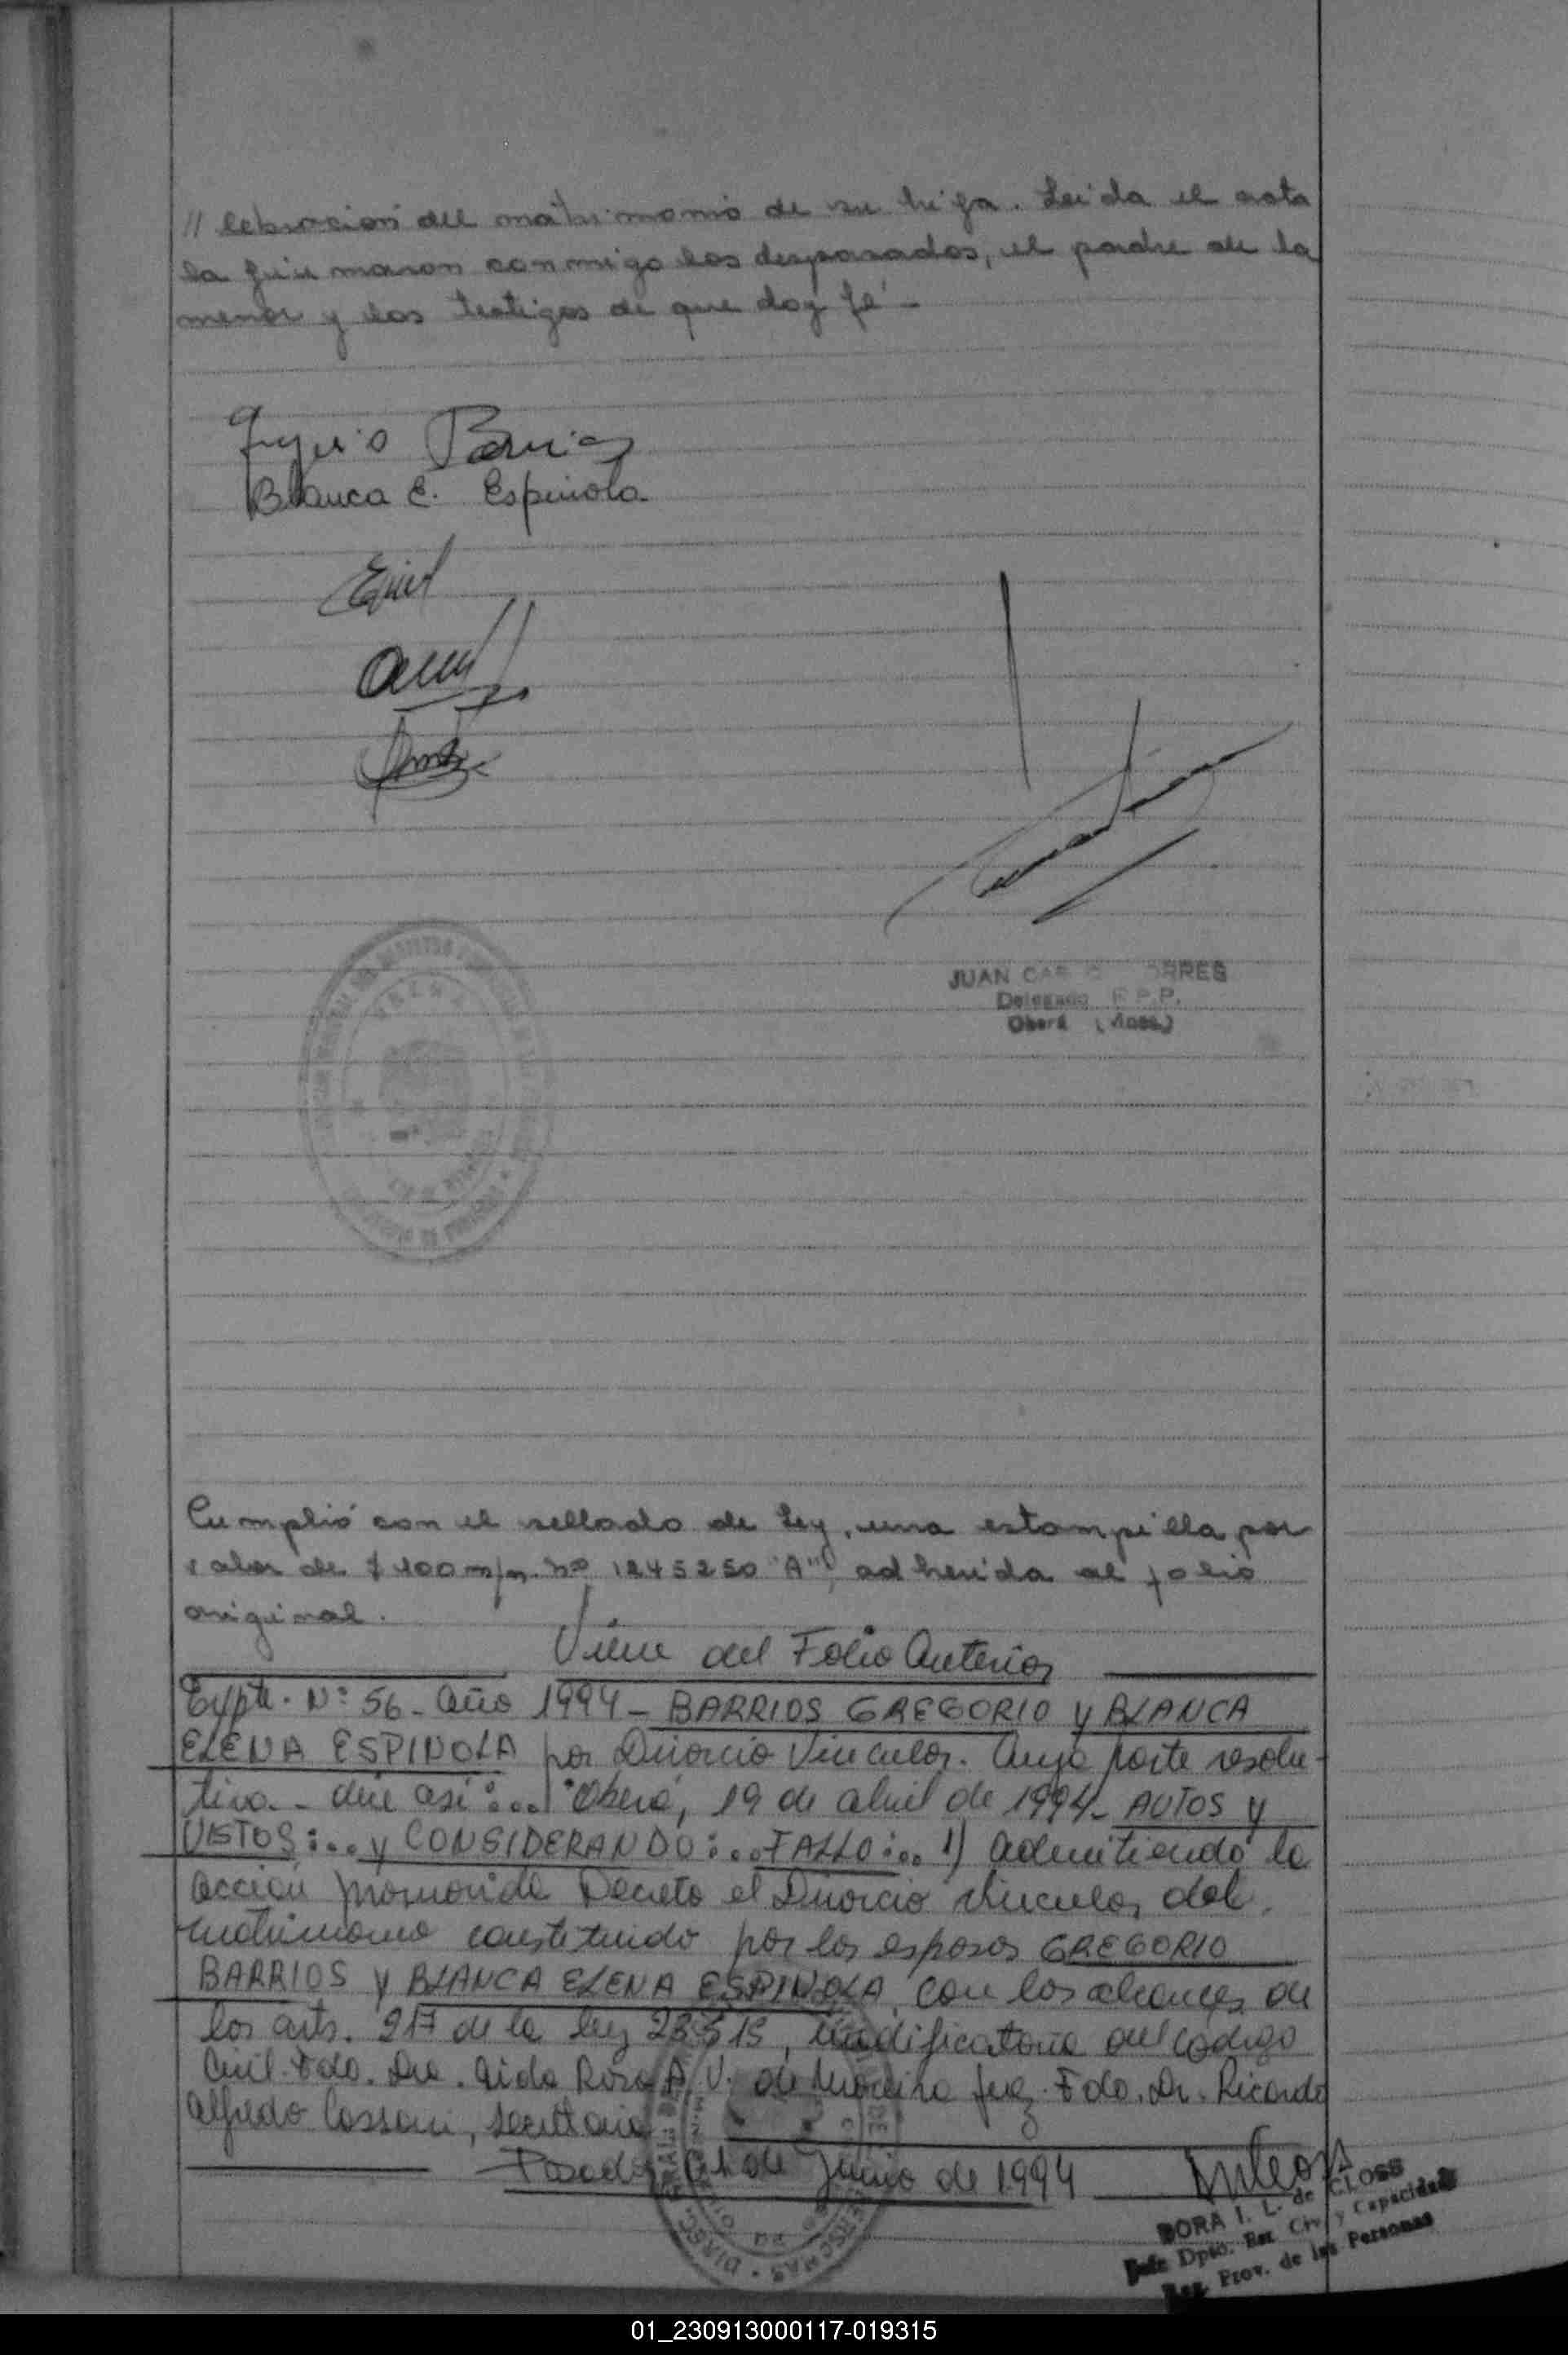 // lebracion del matrimonio de su hija. Leida el acta
la firmaron conmigo los desposados, el padre de la
menor y los testigos de que doy fé -
Gregorio Barrios
Blanca E. Espinola
JUAN CAR ORRES
Delegado R.P.P.
Oberá (Mnes.)
Cumplió con el sellado de Ley, una estampilla por
valor de $ 400 m/n. Nº 1245250 "A", adherida al folio
original.
Viene del Folio Anterior
Expte. Nº 56 - Año 1994 - BARRIOS GREGORIO y BLANCA
ELENA ESPINOLA por Divorcio Vincular. Cuya parte resolu-
tiva - dice así:... "Oberá, 19 de abril de 1994 - AUTOS y
VISTOS:... y CONSIDERANDO:... FALLO:... 1) Admitiendo la
acción promovida Decreto el Divorcio vincular del
matrimonio constituido por los esposos GREGORIO
BARRIOS y BLANCA ELENA ESPINOLA, con los alcances de
los arts. 217 de la ley 23515, modificatoria del código
Civil. Fdo. Dra. Aida Rosa A. V. de Moreira Juez. Fdo. Dr. Ricardo
Alfredo Cassoni, Secretario
Posadas, de Junio de 1994
DORA I. L. de CLOSS
Jefe Dpto. Est. Civ. y Capacidad
Reg. Prov. de las Personas
01_230913000117-019315